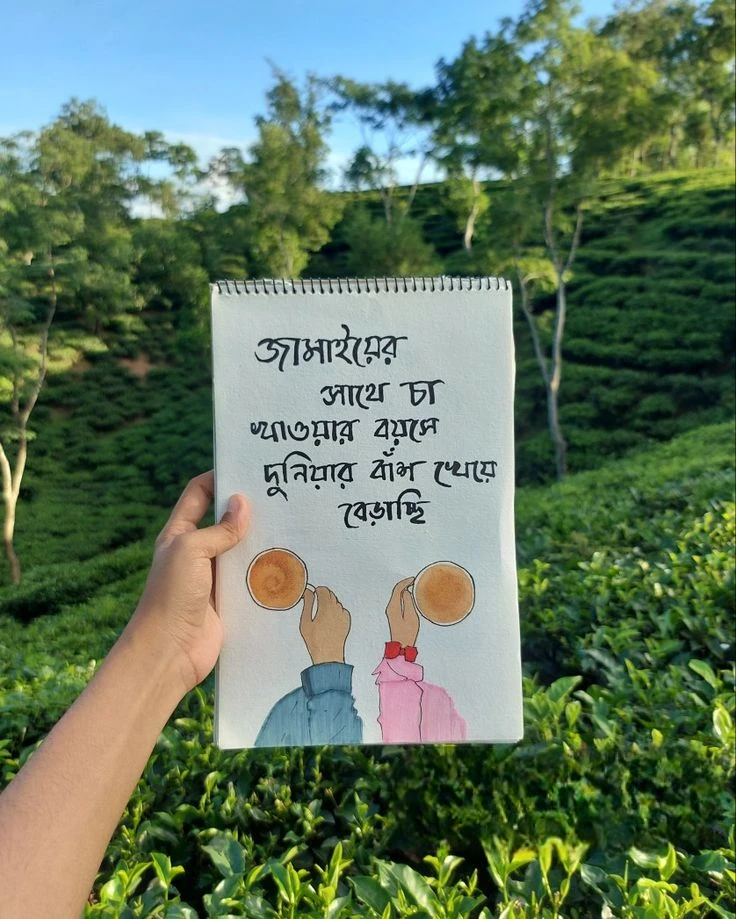 জামাইয়ের
সাথে চা
খাওয়ার বয়সে
দুনিয়ার বাঁশ খেয়ে
বেড়াচ্ছি